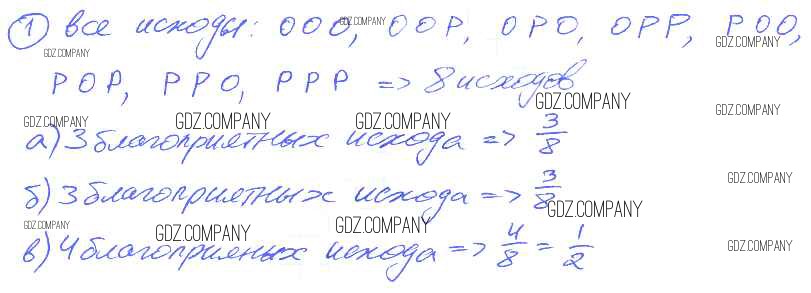 ① Все исходы: ООО, ООР, ОРО, ОРР, РОО,
РОР, РРО, РРР => 8 исходов
а) 3 благоприятных исхода => 3/8
б) 3 благоприятных исхода => 3/8
в) 4 благоприяных исхода => 4/8 = 1/2
GDZ.COMPANY
GDZ.COMPANY
GDZ.COMPANY
GDZ.COMPANY
GDZ.COMPANY
GDZ.COMPANY
GDZ.COMPANY
GDZ.COMPANY
GDZ.COMPANY
GDZ.COMPANY
GDZ.COMPANY
GDZ.COMPANY
GDZ.COMPANY
GDZ.COMPANY